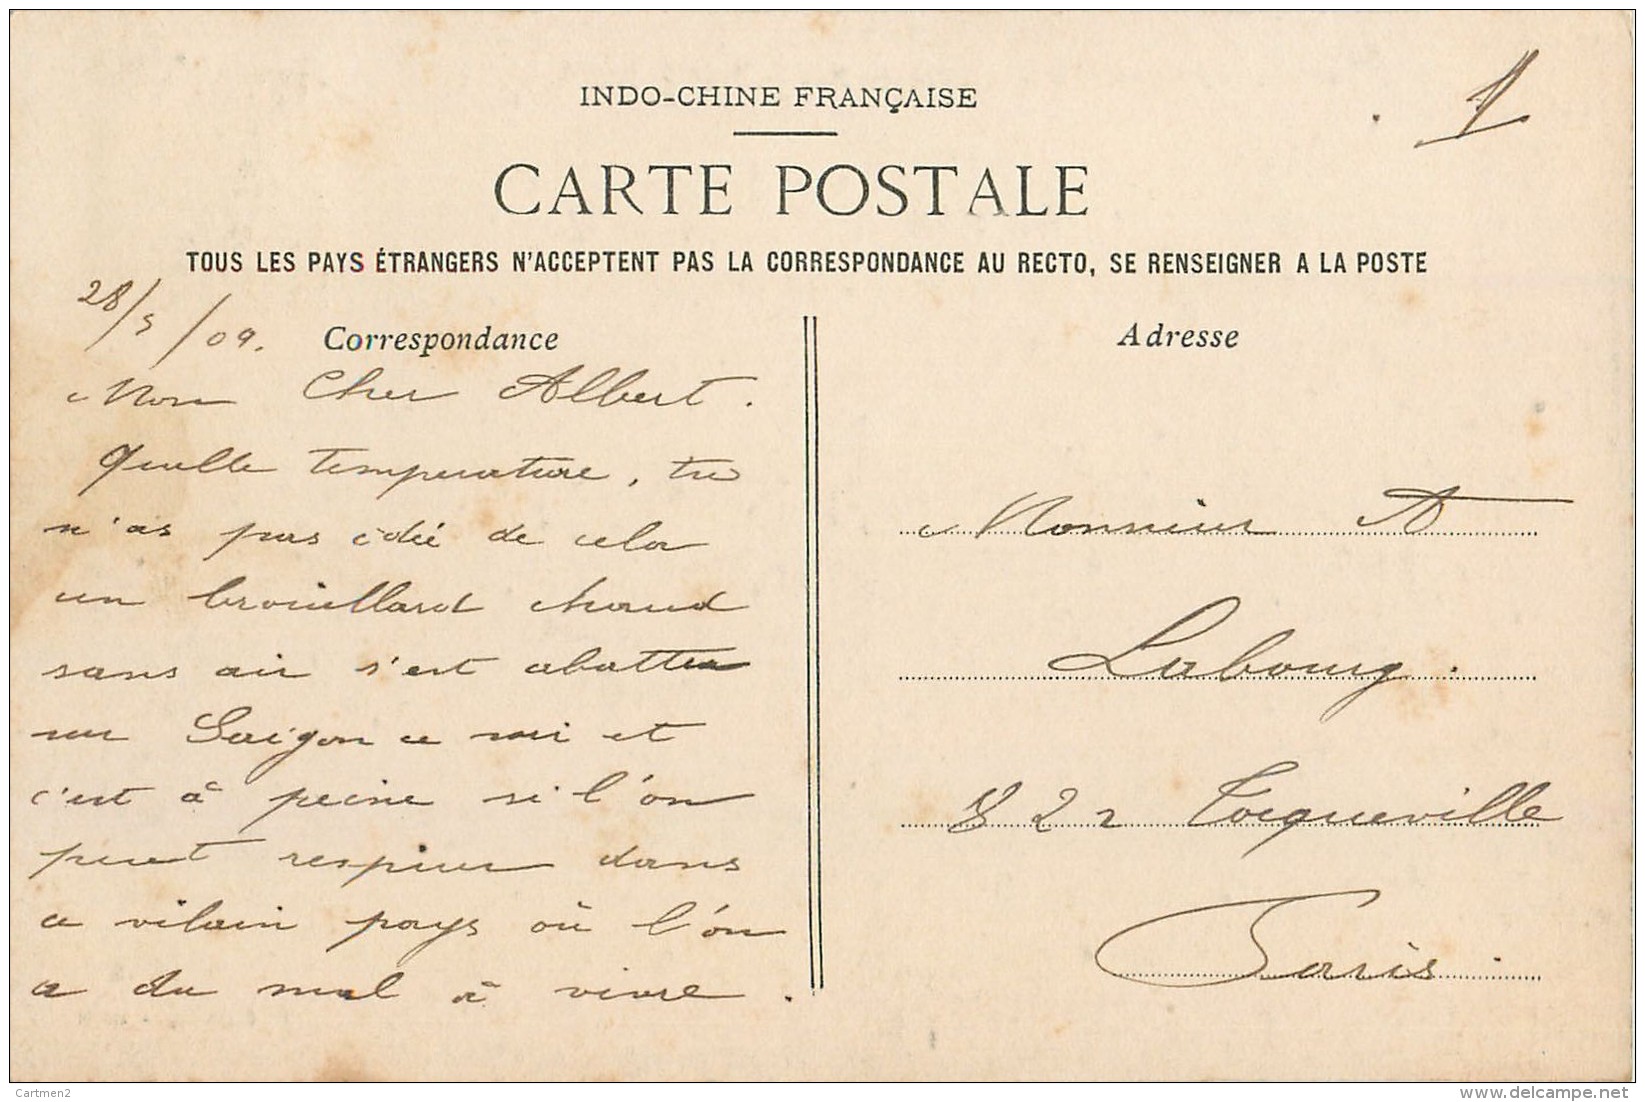 INDO-CHINE FRANÇAISE
CARTE POSTALE
TOUS LES PAYS ÉTRANGERS N'ACCEPTENT PAS LA CORRESPONDANCE AU RECTO, SE RENSEIGNER A LA POSTE
28/5/09.
Correspondance
Mon Cher Albert.
Quelle temperature, tu
n'as pas idée de cela
un brouillard chaud
sans air s'est abattu
sur Saigon ce soir et
c'est à peine si l'on
peut respirer dans
ce vilain pays où l'on
a du mal à vivre.
Adresse
Monsieur A
Labourg.
82 r Tocqueville
Paris.
Cartmen2
www.delcampe.net